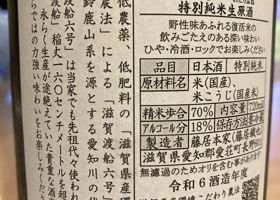 特別純米生原酒
野性味あふれる復活米の
飲みごたえのある深い味わい
ひや・冷酒・ロックでお楽しみください
品目 日本酒 特別純米
原材料 米(国産)、
米こうじ(国産米)
精米歩合 60% 内容量 720ml
アルコール分 18%
製造者 藤居本家(藤居鐵也)
滋賀県愛知郡愛荘町長野
無濾過のためオリを含む事があります
令和6酒造年度
低農薬、低肥料の「滋賀県産
農法」による「滋賀渡船六号」
鈴鹿山系を源とする愛知川の伏
渡船六号」は当家でも先祖代々使われ
、稲丈一六〇センチメートルを超
永らく生産が途絶えていた貴重な酒
ではの力強い味わいをお楽しみくだ